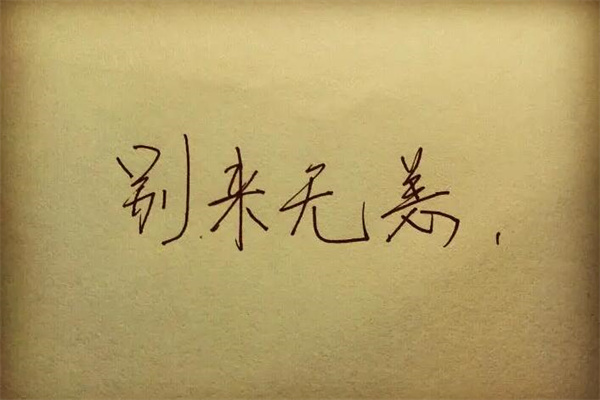 别来无恙.